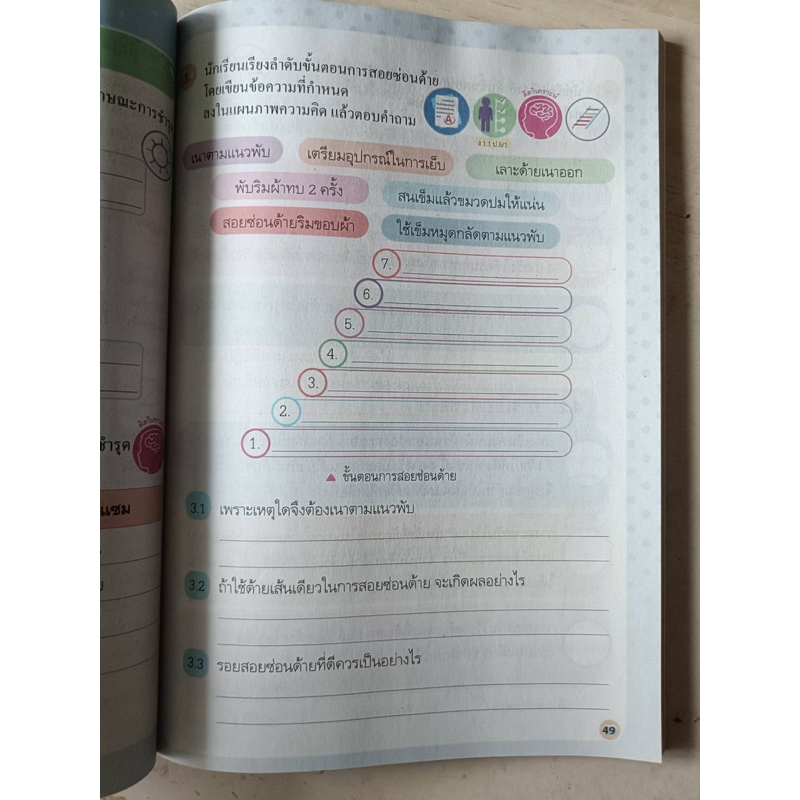 นักเรียนเรียงลำดับขั้นตอนการสอยซ่อนด้าย
โดยเขียนข้อความที่กำหนด
ลงในแผนภาพความคิด แล้วตอบคำถาม
คิดวิเคราะห์
ง 1.1 ป.5/1
เนาตามแนวพับ
เตรียมอุปกรณ์ในการเย็บ
เลาะด้ายเนาออก
พับริมผ้าทบ 2 ครั้ง
สนเข็มแล้วขมวดปมให้แน่น
สอยซ่อนด้ายริมขอบผ้า
ใช้เข็มหมุดกลัดตามแนวพับ
7.
6.
5.
4.
3.
2.
1.
▲ ขั้นตอนการสอยซ่อนด้าย
3.1 เพราะเหตุใดจึงต้องเนาตามแนวพับ
3.2 ถ้าใช้ด้ายเส้นเดียวในการสอยซ่อนด้าย จะเกิดผลอย่างไร
3.3 รอยสอยซ่อนด้ายที่ดีควรเป็นอย่างไร
49